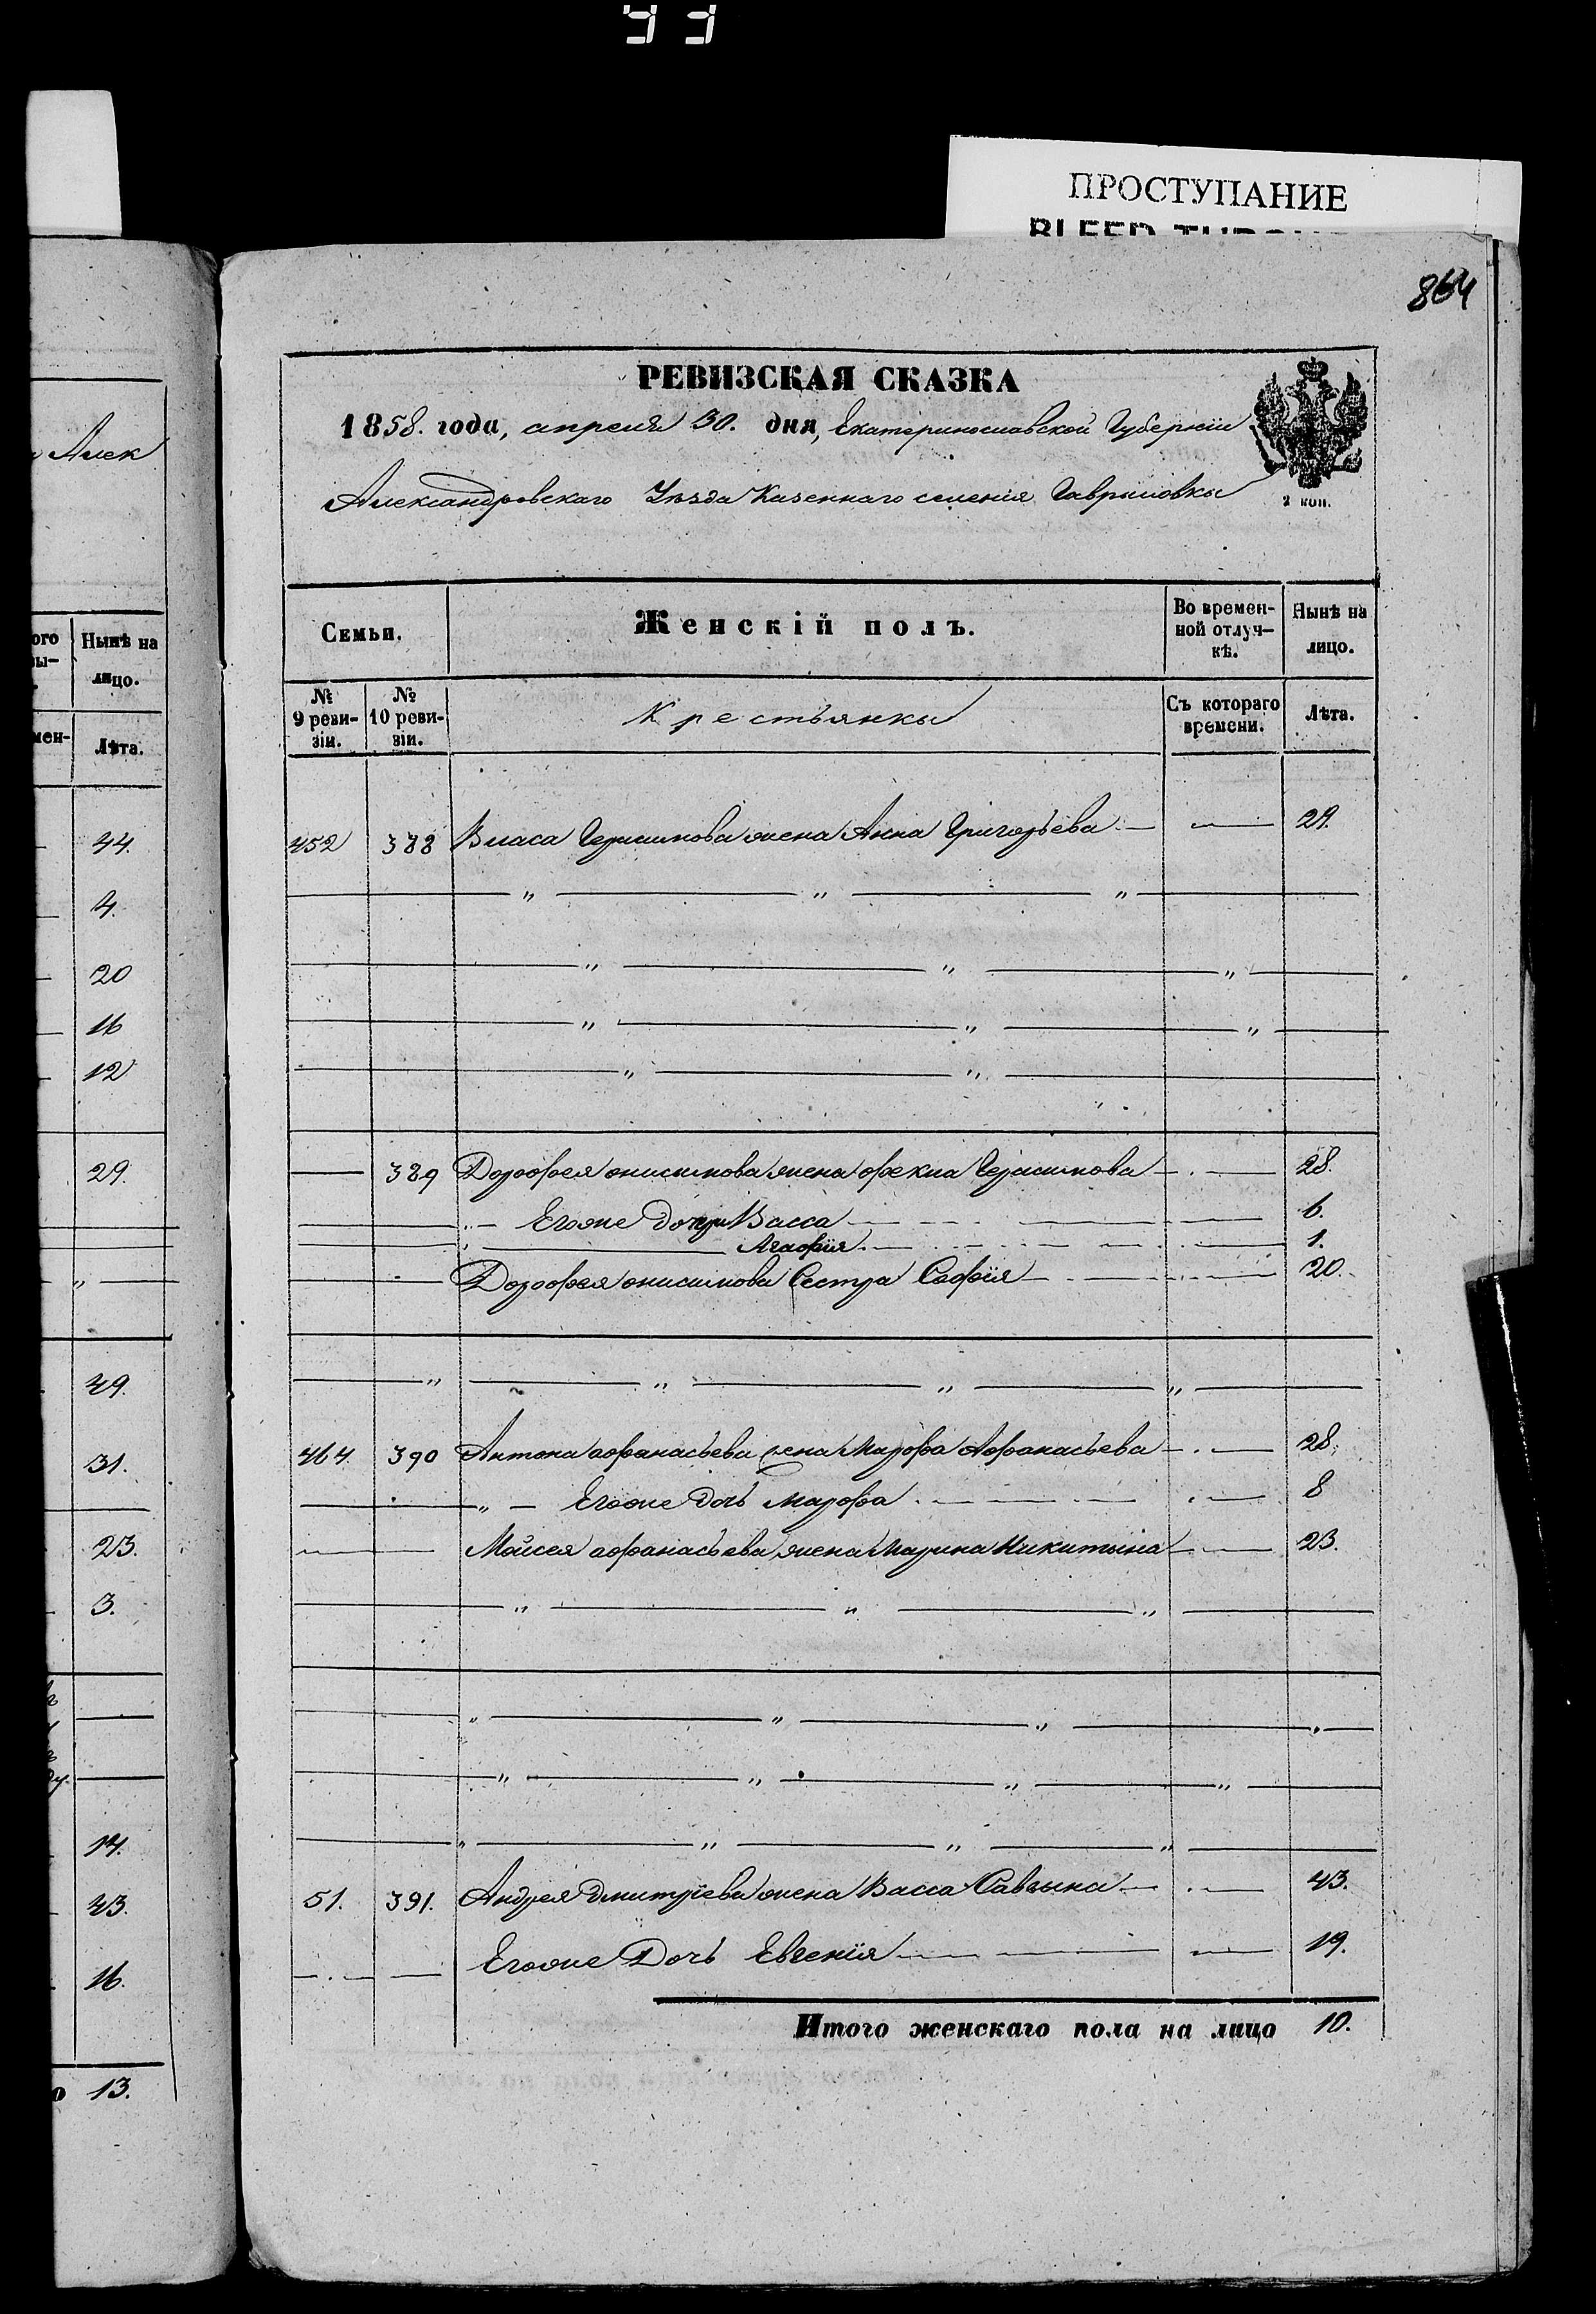 ПРОСТУПАНИЕ
864
Алек
ого Нынѣ на
вы-
лицо.
мен- Лѣта.
44.
4.
20
16
12
29.
49.
31.
23.
3.
14.
43.
16.
о 13.
РЕВИЗСКАЯ СКАЗКА
1858. года, апреля 30. дня, Екатеринославской Губернїи
Александровскаго Уѣзда Казеннаго селенія Гавриловки
2 коп.
Семьи. Женскій полъ. Во времен-ной отлуч-кѣ. Нынѣ на лицо.
№ 9 реви-зіи. № 10 реви-зіи. Крестьянки Съ котораго времени. Лѣта.
452 388 Власа Герасимова жена Анна Григорьева 29.
389 Дорофея онисимова жена фекла Герасимова 28.
Егоже дочери Васса 6.
Агафїя 1.
Дорофея онисимова Сестра Софїя 20.
464. 390 Антона афанасьева жена Марфа Афанасьева 28.
Егоже Дочь марфа 8
Мойсея афанасьева жена Марина Никитына 23.
51. 391. Андрея дмитрїева жена Васса Саввына 43.
Егоже Дочь Евгенїя 19.
Итого женскаго пола на лицо 10.